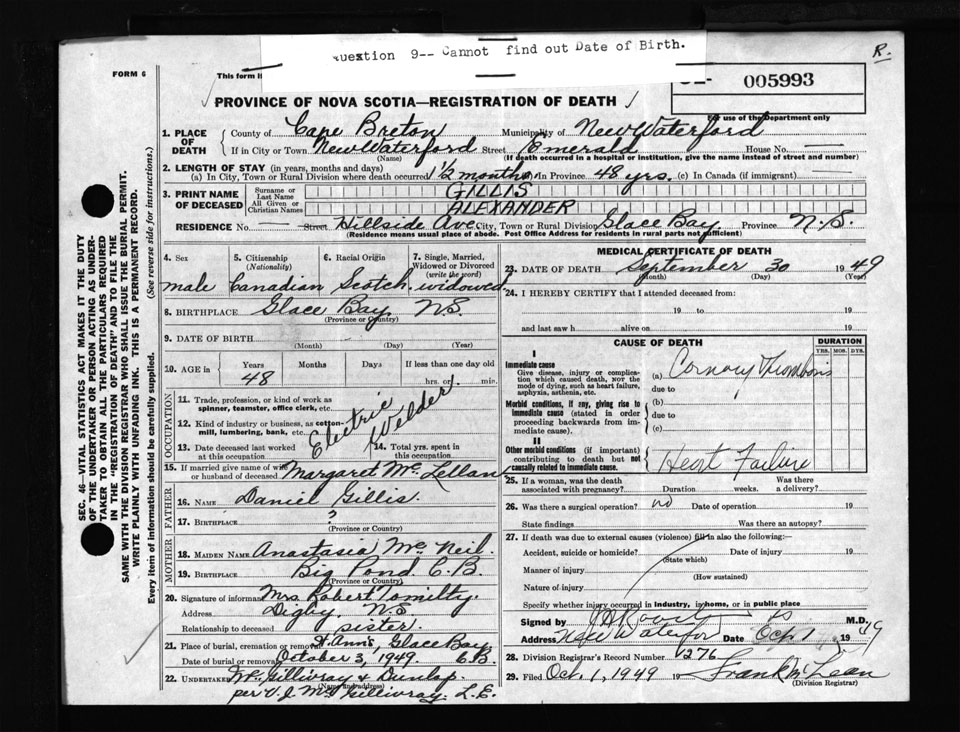 Question 9-- Cannot find out Date of Birth.
R.
FORM 6
This form
005993
PROVINCE OF NOVA SCOTIA—REGISTRATION OF DEATH
For use of the Department only
1. PLACE OF DEATH
County of Cape Breton Municipality of New Waterford
If in City or Town New Waterford Street Emerald House No. —
(Name) (If death occurred in a hospital or institution, give the name instead of street and number)
2. LENGTH OF STAY (in years, months and days)
(a) In City, Town or Rural Division where death occurred 1½ months (b) In Province 48 yrs. (c) In Canada (if immigrant) —
3. PRINT NAME OF DECEASED
Surname or Last Name GILLIS
All Given or Christian Names ALEXANDER
RESIDENCE No. — Street Hillside Ave City, Town or Rural Division Glace Bay Province N.S.
(Residence means usual place of abode. Post Office Address for residents in rural parts not sufficient)
4. Sex 5. Citizenship (Nationality) 6. Racial Origin 7. Single, Married, Widowed or Divorced (write the word)
male Canadian Scotch widowed
8. BIRTHPLACE Glace Bay N.S.
(Province or Country)
9. DATE OF BIRTH
(Month) (Day) (Year)
10. AGE in Years Months Days If less than one day old
48 hrs. or min.
OCCUPATION
11. Trade, profession, or kind of work as spinner, teamster, office clerk, etc.
12. Kind of industry or business, as cotton-mill, lumbering, bank, etc.
Electric Welder
13. Date deceased last worked at this occupation
14. Total yrs. spent in this occupation
15. If married give name of wife or husband of deceased Margaret McLellan
FATHER
16. NAME Daniel Gillis
17. BIRTHPLACE ?
(Province or Country)
MOTHER
18. MAIDEN NAME Anastasia McNeil
19. BIRTHPLACE Big Pond C.B.
(Province or Country)
20. Signature of informant Mrs Robert Tomilty
Address Digby N.S.
Relationship to deceased sister
21. Place of burial, cremation or removal St Ann's, Glace Bay
Date of burial or removal October 3, 1949. C.B.
22. UNDERTAKER McGillivray & Dunlap
(Name and address)
per V. J. McGillivray. L.E.
MEDICAL CERTIFICATE OF DEATH
23. DATE OF DEATH September 30 1949
(Month) (Day) (Year)
24. I HEREBY CERTIFY that I attended deceased from:
19 to 19
and last saw h alive on 19
CAUSE OF DEATH
DURATION
YRS. MOS. DYS.
I
Immediate cause
Give disease, injury or complication which caused death, NOT the mode of dying, such as heart failure, asphyxia, asthenia, etc.
(a) Cornary Thrombosis
due to
Morbid conditions, if any, giving rise to immediate cause (stated in order proceeding backwards from immediate cause).
(b)
due to
(c)
II
Other morbid conditions (if important) contributing to death but not causally related to immediate cause.
Heart Failure
25. If a woman, was the death associated with pregnancy? Duration weeks. Was there a delivery?
26. Was there a surgical operation? no Date of operation 19
State findings Was there an autopsy?
27. If death was due to external causes (violence) fill in also the following:—
Accident, suicide or homicide? Date of injury 19
(State which)
Manner of injury
(How sustained)
Nature of injury
Specify whether injury occurred in industry, in home, or in public place
Signed by M.D.
Address New Waterford Date Oct 1 1949
28. Division Registrar's Record Number 1276
29. Filed Oct. 1, 1949 19 Frank McLean
(Division Registrar)
SEC. 46 VITAL STATISTICS ACT MAKES IT THE DUTY
OF THE UNDERTAKER OR PERSON ACTING AS UNDER-
TAKER TO OBTAIN ALL THE PARTICULARS REQUIRED
IN THE "REGISTRATION OF DEATH" AND TO FILE THE
SAME WITH THE DIVISION REGISTRAR WHO SHALL ISSUE THE BURIAL PERMIT.
WRITE PLAINLY WITH UNFADING INK. THIS IS A PERMANENT RECORD.
Every item of information should be carefully supplied. (See reverse side for instructions.)